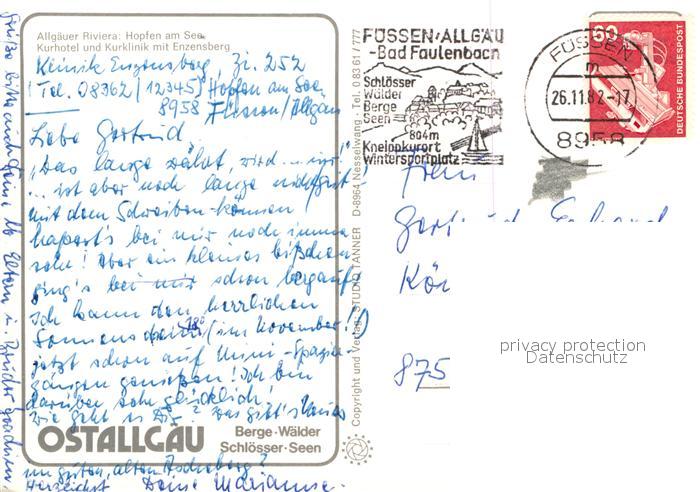 Allgäuer Riviera: Hopfen am See
Kurhotel und Kurklinik mit Enzensberg
Klinik Enzensberg, Zi. 252
(Tel. 08362/12345) Hopfen am See
8958 Füssen/Allgäu
Liebe Gertrud,
"Was lange währt, wird ... gut"!
... ist aber noch lange nicht gut!
mit dem Schreiben-können
hapert's bei mir noch immer
sehr! Aber ein kleines bißchen
ging's bei mir schon bergauf!
Ich kann den herrlichen
Sonnenschein (im November!)
jetzt schon auf Mini-Spazier-
gängen genießen! Ich bin
darüber sehr glücklich.
Wie geht es Dir? Was gibt's Neues
im guten, alten Ascheberg?
Herzlichst Deine Marianne.
OSTALLGÄU
Berge · Wälder
Schlösser · Seen
Grüße bitte auch Deine lb. Eltern u. Bruder
Copyright und Verlag: STUDIO TANNER D-8964 Nesselwang · Tel. 0 83 61 / 777
FÜSSEN·ALLGÄU
-Bad Faulenbach
Schlösser
Wälder
Berge
Seen
804m
Kneippkurort
Wintersportplatz
FÜSSEN
m
26.11.82-17
8958
60
DEUTSCHE BUNDESPOST
875
privacy protection
Datenschutz